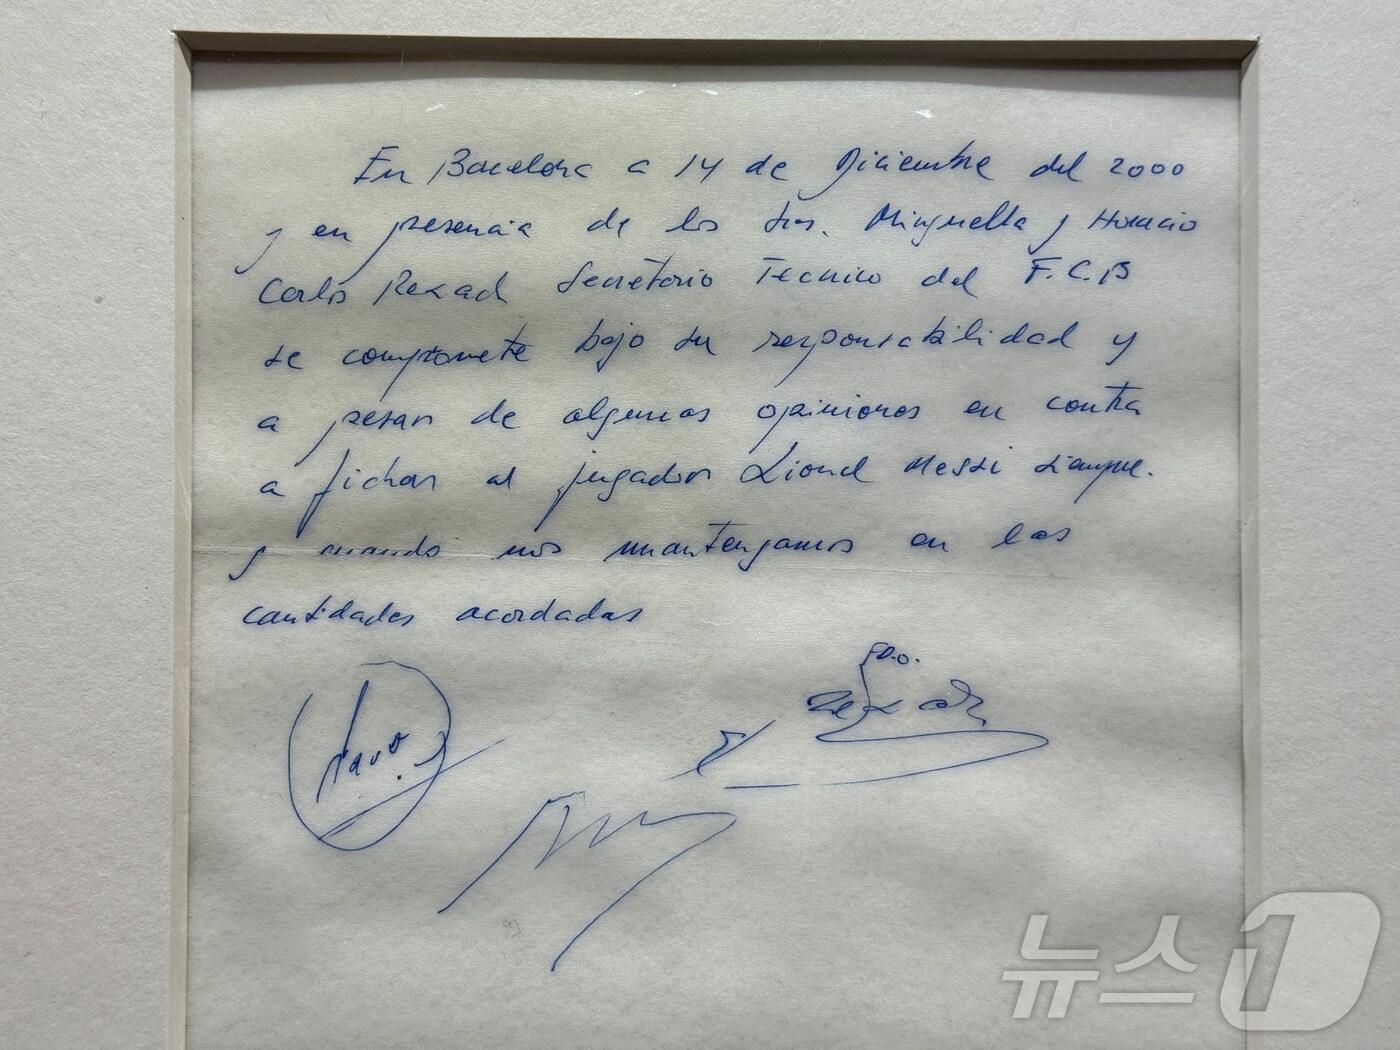 En Barcelona a 14 de Diciembre del 2000
y en presencia de los Srs. Minguella y Horacio
Carlos Rexach Secretario Tecnico del F.C.B
se compromete bajo su responsabilidad y
a pesar de algunas opiniones en contra
a fichar al jugador Lionel Messi siempre.
y cuando nos mantengamos en las
cantidades acordadas
FDO.
Rexach
뉴스1